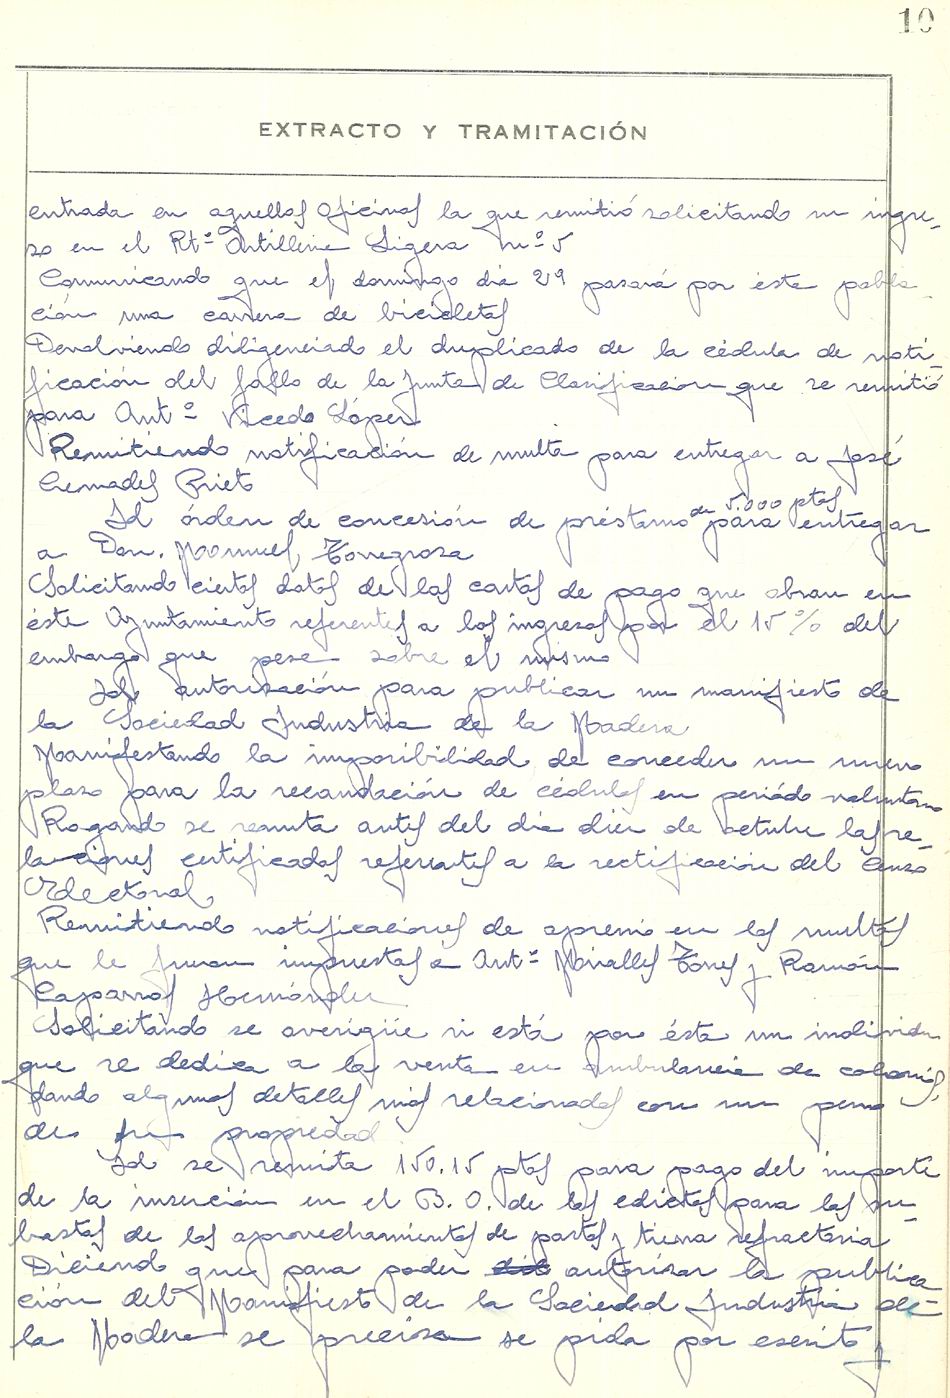 10
EXTRACTO Y TRAMITACIÓN
entrada en aquellas oficinas la que remitió solicitando su ingre-
so en el Rtº Artilleria Ligera nº 5
Comunicando que el domingo dia 29 pasará por ésta pobla-
ción una carrera de bicicletas
Devolviendo diligenciado el duplicado de la cédula de noti-
ficación del fallo de la Junta de Clasificación que se remitió
para Antº Vicedo López
Remitiendo notificación de multa para entregar a José
Cremades Prieto
Id órden de concesión de préstamo de 5.000 ptas para entregar
a Don. Manuel Torregrosa
Solicitando ciertos datos de las cartas de pago que obran en
éste Ayuntamiento referentes a los ingresos por el 15% del
embargo que pesa sobre el mismo
Id. autorización para publicar un manifiesto de
la Sociedad Industria de la Madera
Manifestando la imposibilidad de conceder un nuevo
plazo para la recaudación de cédulas en periódo voluntario
Rogando se remita antes del dia diez de octubre las re-
laciones certificadas referentes a la rectificación del Censo
Electoral
Remitiendo notificaciones de apremio en las multas
que le fueron impuestas a Antº Miralles Torres y Ramón
Caparrós Hernández
Solicitando se averigüe si está por ésta un individuo
que se dedica a la venta en ambulancia de colonias,
dando algunos detalles más relacionados con un perro
de su propiedad
Id se remita 150.15 ptas para pago del importe
de la inserción en el B. O. de los edictos para las su-
bastas de los aprovechamientos de pastos y tierra refractaria
Diciendo que para poder autorizar la publica
ción del Manifiesto de la Sociedad Industria de
la Madera se precisa se pida por escrito